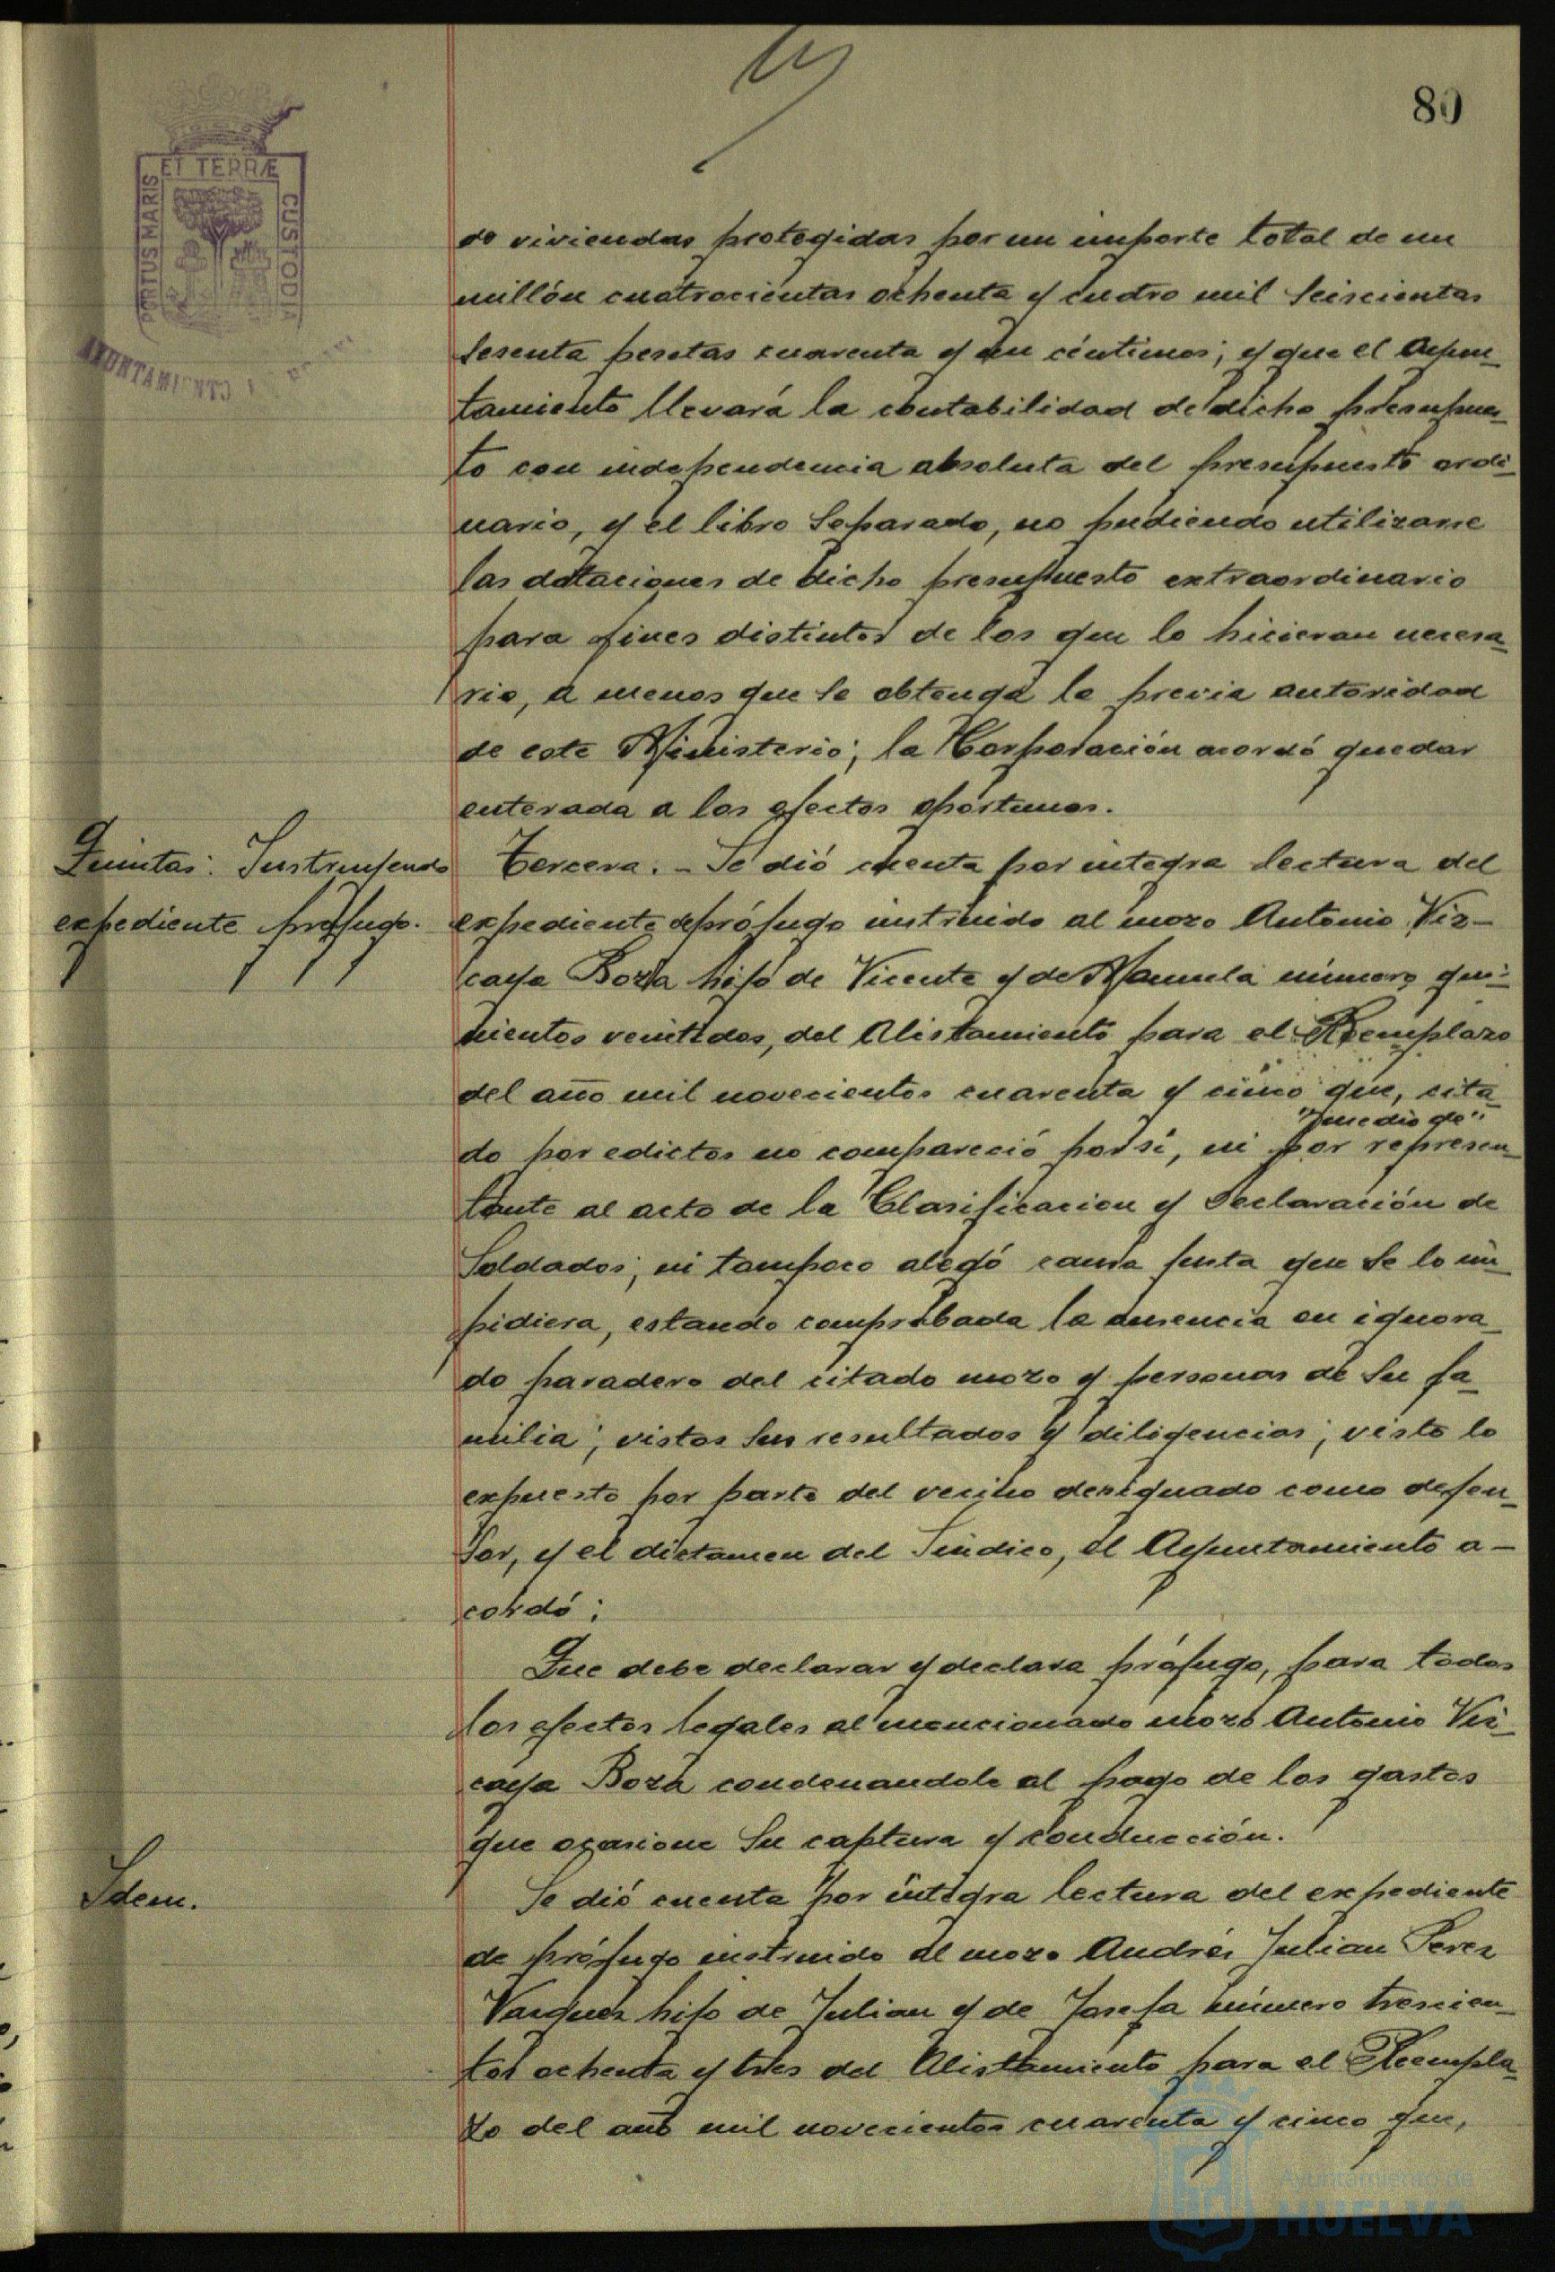 80
PORTUS MARIS ET TERRÆ CUSTODIA
AYUNTAMIENTO
de viviendas protegidas por un importe total de un
millón cuatrocientas ochenta y cuatro mil seiscientas
sesenta pesetas cuarenta y un céntimos; y que el Ayun_
tamiento llevará la contabilidad de dicho presupues_
to con independencia absoluta del presupuesto ordi_
nario, y el libro separado, no pudiendo utilizarse
las dotaciones de dicho presupuesto extraordinario
para fines distintos de los que lo hicieran necesa_
rio, a menos que se obtenga la previa autoridad
de este Ministerio; la Corporación acordó quedar
enterada a los efectos oportunos.
Quintas: Instruyendo
expediente prófugo.
Tercera. - Se dió cuenta por integra lectura del
expediente de prófugo instruido al mozo Antonio Viz-
caya Boza hijo de Vicente y de Manuela número qui-
nientos veintidos, del Alistamiento para el Reemplazo
del año mil novecientos cuarenta y cinco que, cita_
do por edictos no compareció por si, ni por "medio de" represen_
tante al acto de la Clasificacion y Declaración de
Soldados; ni tampoco alegó causa justa que se lo im_
pidiera, estando comprobada la ausencia en ignora_
do paradero del citado mozo y personas de su fa_
milia; vistos sus resultados y diligencias; visto lo
expuesto por parte del vecino designado como defen_
sor, y el dictamen del Sindico, el Ayuntamiento a-
cordó:
Que debe declarar y declara prófugo, para todos
los efectos legales al mencionado mozo Antonio Viz_
caya Boza condenandole al pago de los gastos
que ocasione su captura y conducción.
Idem.
Se dió cuenta por íntegra lectura del expediente
de prófugo instruido al mozo Andrés Julian Perez
Vazquez hijo de Julian y de Josefa número trescien_
tos ochenta y tres del Alistamiento para el Reempla_
zo del año mil novecientos cuarenta y cinco que,
Ayuntamiento de
HUELVA